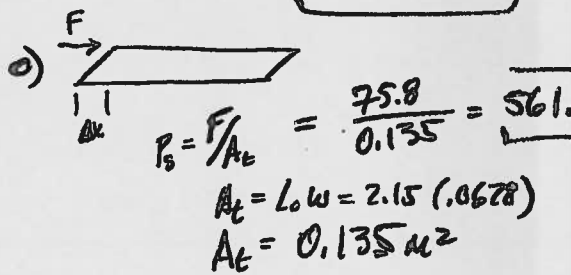 F
a)
Δx
Pₛ = F/Aₜ = 75.8/0.135 = 561.
Aₜ = L₀ w = 2.15 (.0628)
Aₜ = 0.135 m²